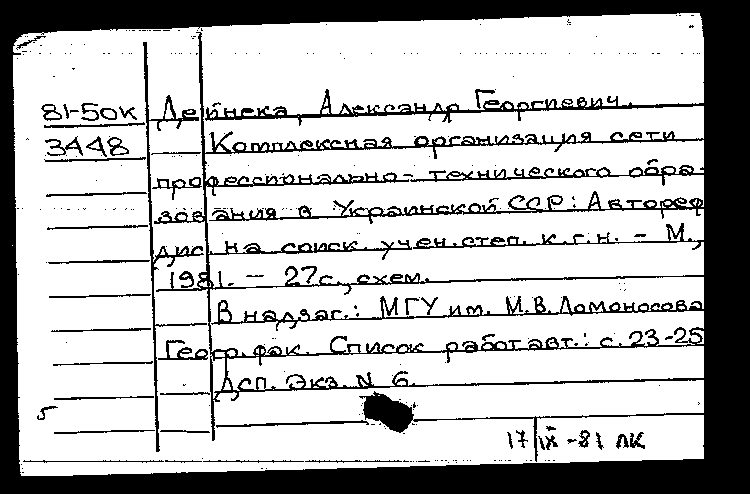 81-50к Дейнека, Александр Георгиевич.
3448 Комплексная организация сети
профессионально-технического обра-
зования в Украинской ССР: Автореф
дис. на соиск. учен. степ. к.г.н. - М.,
1981. - 27с., схем.
В надзаг.: МГУ им. М.В. Ломоносова
Геогр. фак. Список работ авт.: с. 23-25
Дсп. Экз. N 6.
5
17/IX-81 лк